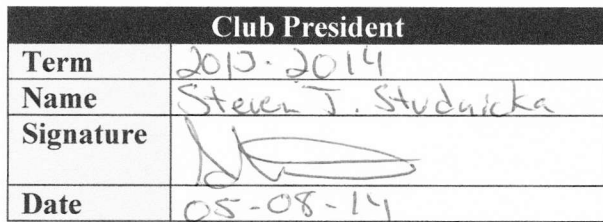 Club President
Term 2013-2014
Name Steven J. Studnicka
Signature
Date 05-08-14